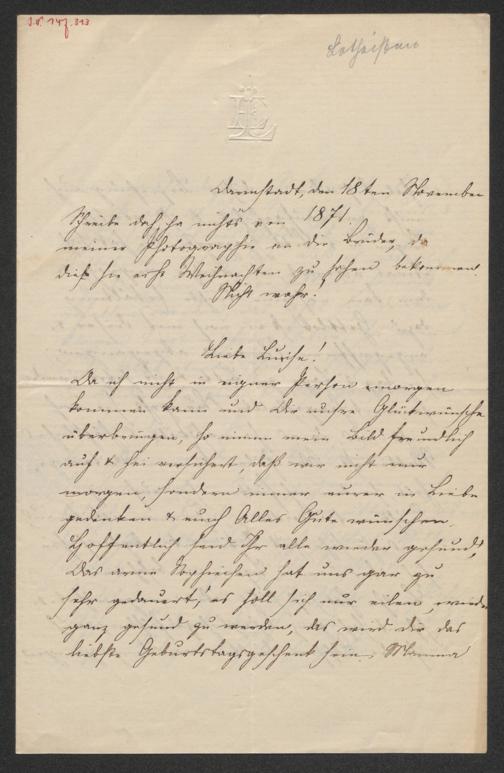 I.N. 147.313
Lotheißen
HL
Darmstadt, den 18ten November
Schreibe doch ja nichts von 1871.
meiner Photographie an die Brüder, da
diese sie erst Weihnachten zu sehen bekommen
Nicht wahr!
Liebe Luise!
Da ich nicht in eigner Person morgen
kommen kann und Dir unsre Glückwünsche
überbringen, so nimm mein Bild freundlich
auf & sei versichert, daß wir nicht nur
morgen, sondern immer eurer in Liebe
gedenken & euch Alles Gute wünschen.
Hoffentlich seid Ihr alle wieder gesund,
das arme Sophiechen hat uns gar zu
sehr gedauert, es soll sich nur eilen, wieder
ganz gesund zu werden, das wird dir das
liebste Geburtstagsgeschenk sein. Mamma